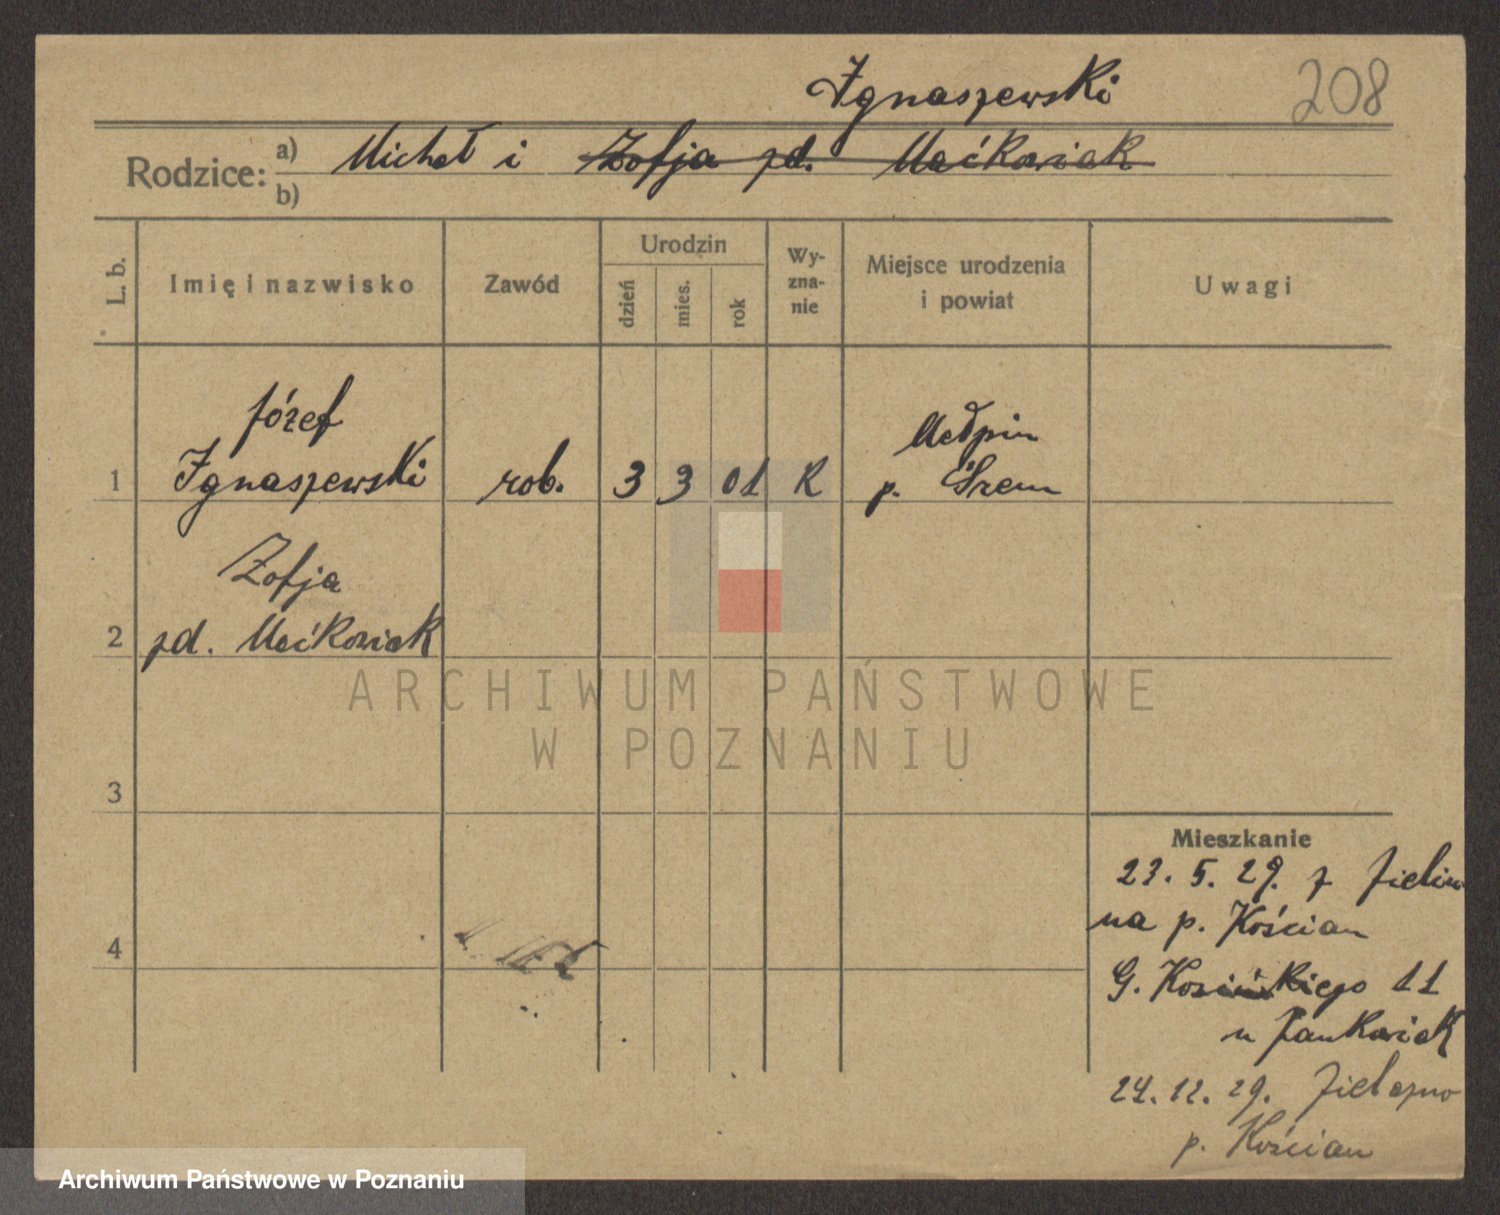 Ignaszewski
208
Rodzice: a) Michał i Zofja zd. Maćkowiak
b)
L. b. Imię i nazwisko Zawód Urodzin dzień mies. rok Wy-zna-nie Miejsce urodzenia i powiat Uwagi
Józef
Ignaszewski
1 rob. 3 3 01 R
Małpin
p. Śrem
Zofja
2 zd. Maćkowiak
3
4
Mieszkanie
23. 5. 29. z
na p. Kościan
G. Kosińskiego 11
u Jankowiak
24. 12. 29.
p. Kościan
ARCHIWUM PAŃSTWOWE
W POZNANIU
Archiwum Państwowe w Poznaniu